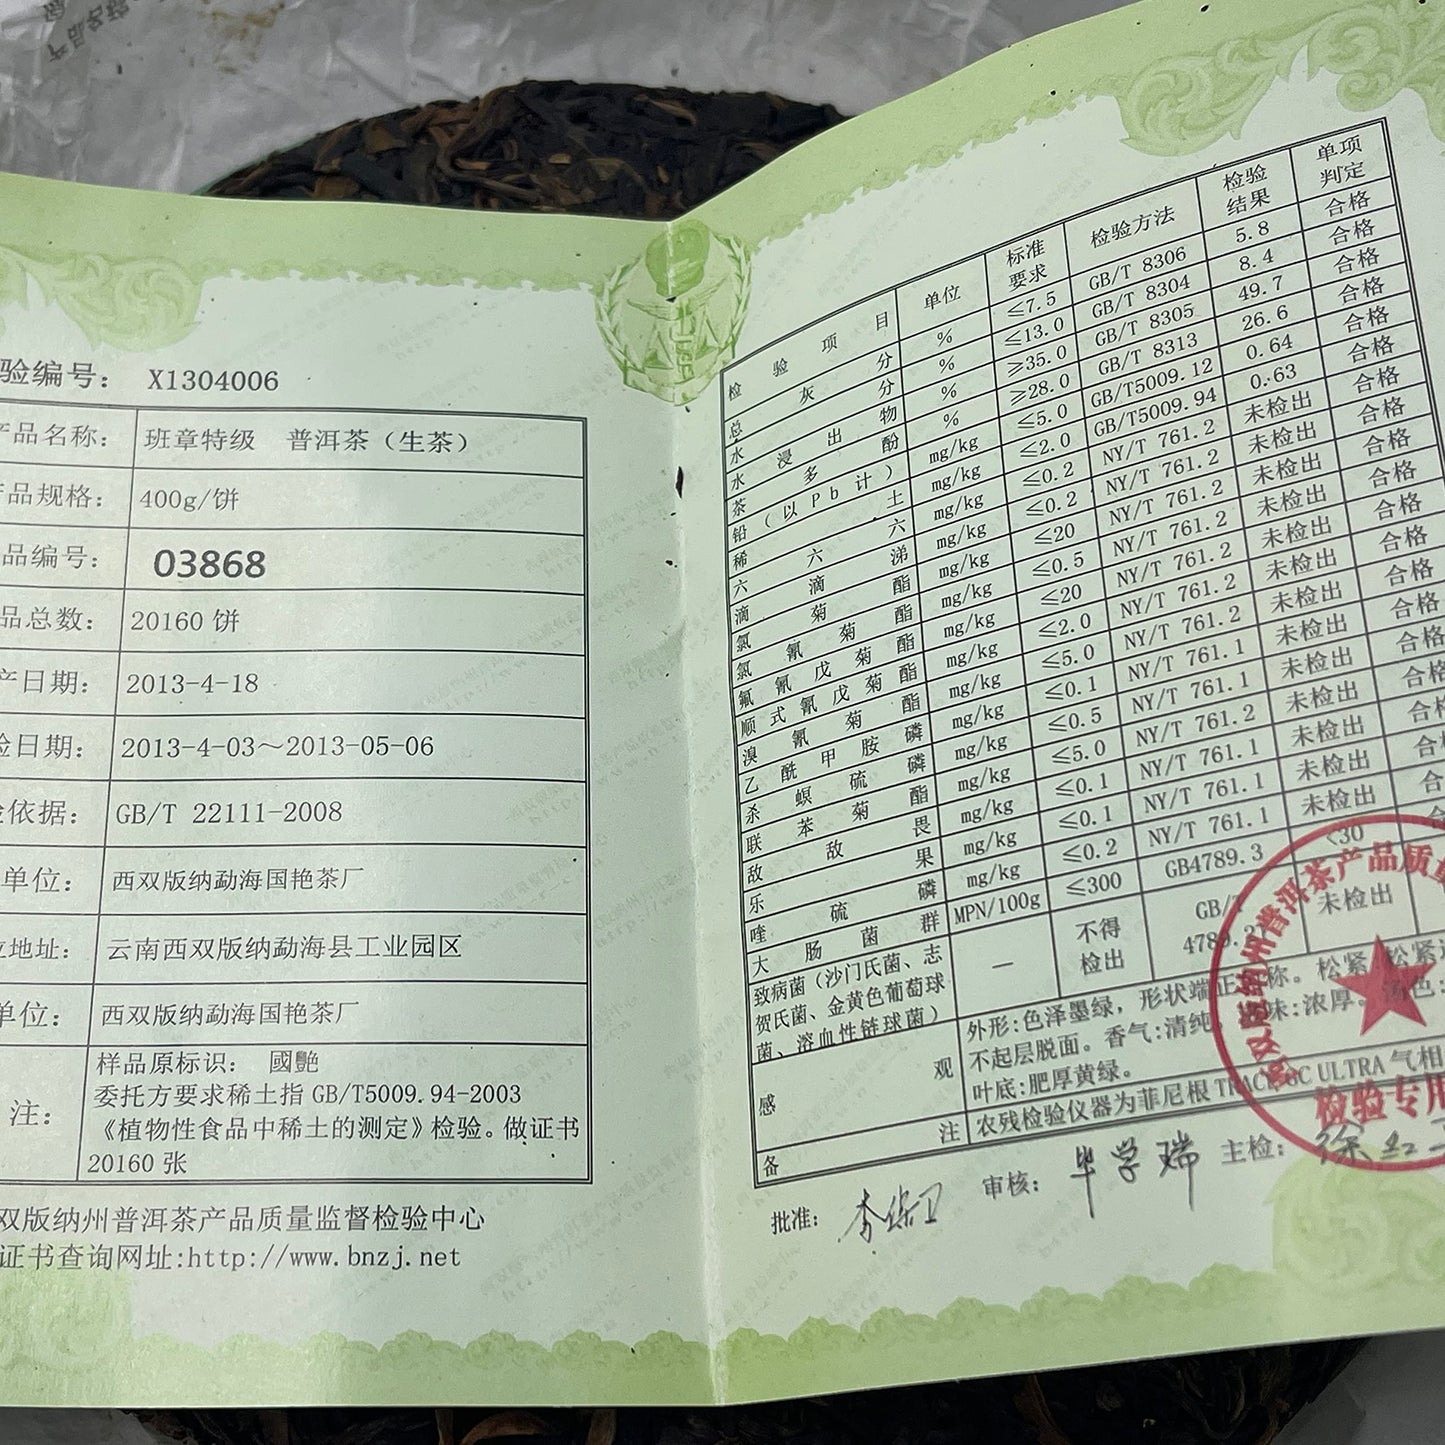 验编号: X1304006
产品名称: 班章特级 普洱茶（生茶）
产品规格: 400g/饼
品编号: 03868
品总数: 20160 饼
产日期: 2013-4-18
验日期: 2013-4-03～2013-05-06
验依据: GB/T 22111-2008
单位: 西双版纳勐海国艳茶厂
位地址: 云南西双版纳勐海县工业园区
单位: 西双版纳勐海国艳茶厂
注: 样品原标识: 國艷
委托方要求稀土指 GB/T5009.94-2003
《植物性食品中稀土的测定》检验。做证书
20160 张
双版纳州普洱茶产品质量监督检验中心
证书查询网址:http://www.bnzj.net
检验项目 单位 标准要求 检验方法 检验结果 单项判定
总灰分 % ≤7.5 GB/T 8306 5.8 合格
水分 % ≤13.0 GB/T 8304 8.4 合格
水浸出物 % ≥35.0 GB/T 8305 49.7 合格
茶多酚 % ≥28.0 GB/T 8313 26.6 合格
铅（以Pb计） mg/kg ≤5.0 GB/T5009.12 0.64 合格
稀土 mg/kg ≤2.0 GB/T5009.94 0.63 合格
六六六 mg/kg ≤0.2 NY/T 761.2 未检出 合格
滴滴涕 mg/kg ≤0.2 NY/T 761.2 未检出 合格
氯菊酯 mg/kg ≤20 NY/T 761.2 未检出 合格
氯氰菊酯 mg/kg ≤0.5 NY/T 761.2 未检出 合格
氟氰戊菊酯 mg/kg ≤20 NY/T 761.2 未检出 合格
顺式氰戊菊酯 mg/kg ≤2.0 NY/T 761.2 未检出 合格
溴氰菊酯 mg/kg ≤5.0 NY/T 761.2 未检出 合格
乙酰甲胺磷 mg/kg ≤0.1 NY/T 761.1 未检出 合格
杀螟硫磷 mg/kg ≤0.5 NY/T 761.1 未检出 合格
联苯菊酯 mg/kg ≤5.0 NY/T 761.2 未检出 合格
敌敌畏 mg/kg ≤0.1 NY/T 761.1 未检出 合
乐果 mg/kg ≤0.1 NY/T 761.1 未检出 合
喹硫磷 mg/kg ≤0.2 NY/T 761.1 未检出 合
大肠菌群 MPN/100g ≤300 GB4789.3 <30
致病菌（沙门氏菌、志
贺氏菌、金黄色葡萄球
菌、溶血性链球菌） — 不得检出 GB/T 未检出
感观 外形:色泽墨绿，形状端正
不起层脱面。香气:清纯。
叶底:肥厚黄绿。
备注 农残检验仪器为菲尼根 TRACE GC ULTRA 气相
批准: 李 审核: 毕学瑞 主检: 徐
双版纳州普洱茶产品质量
检验专用